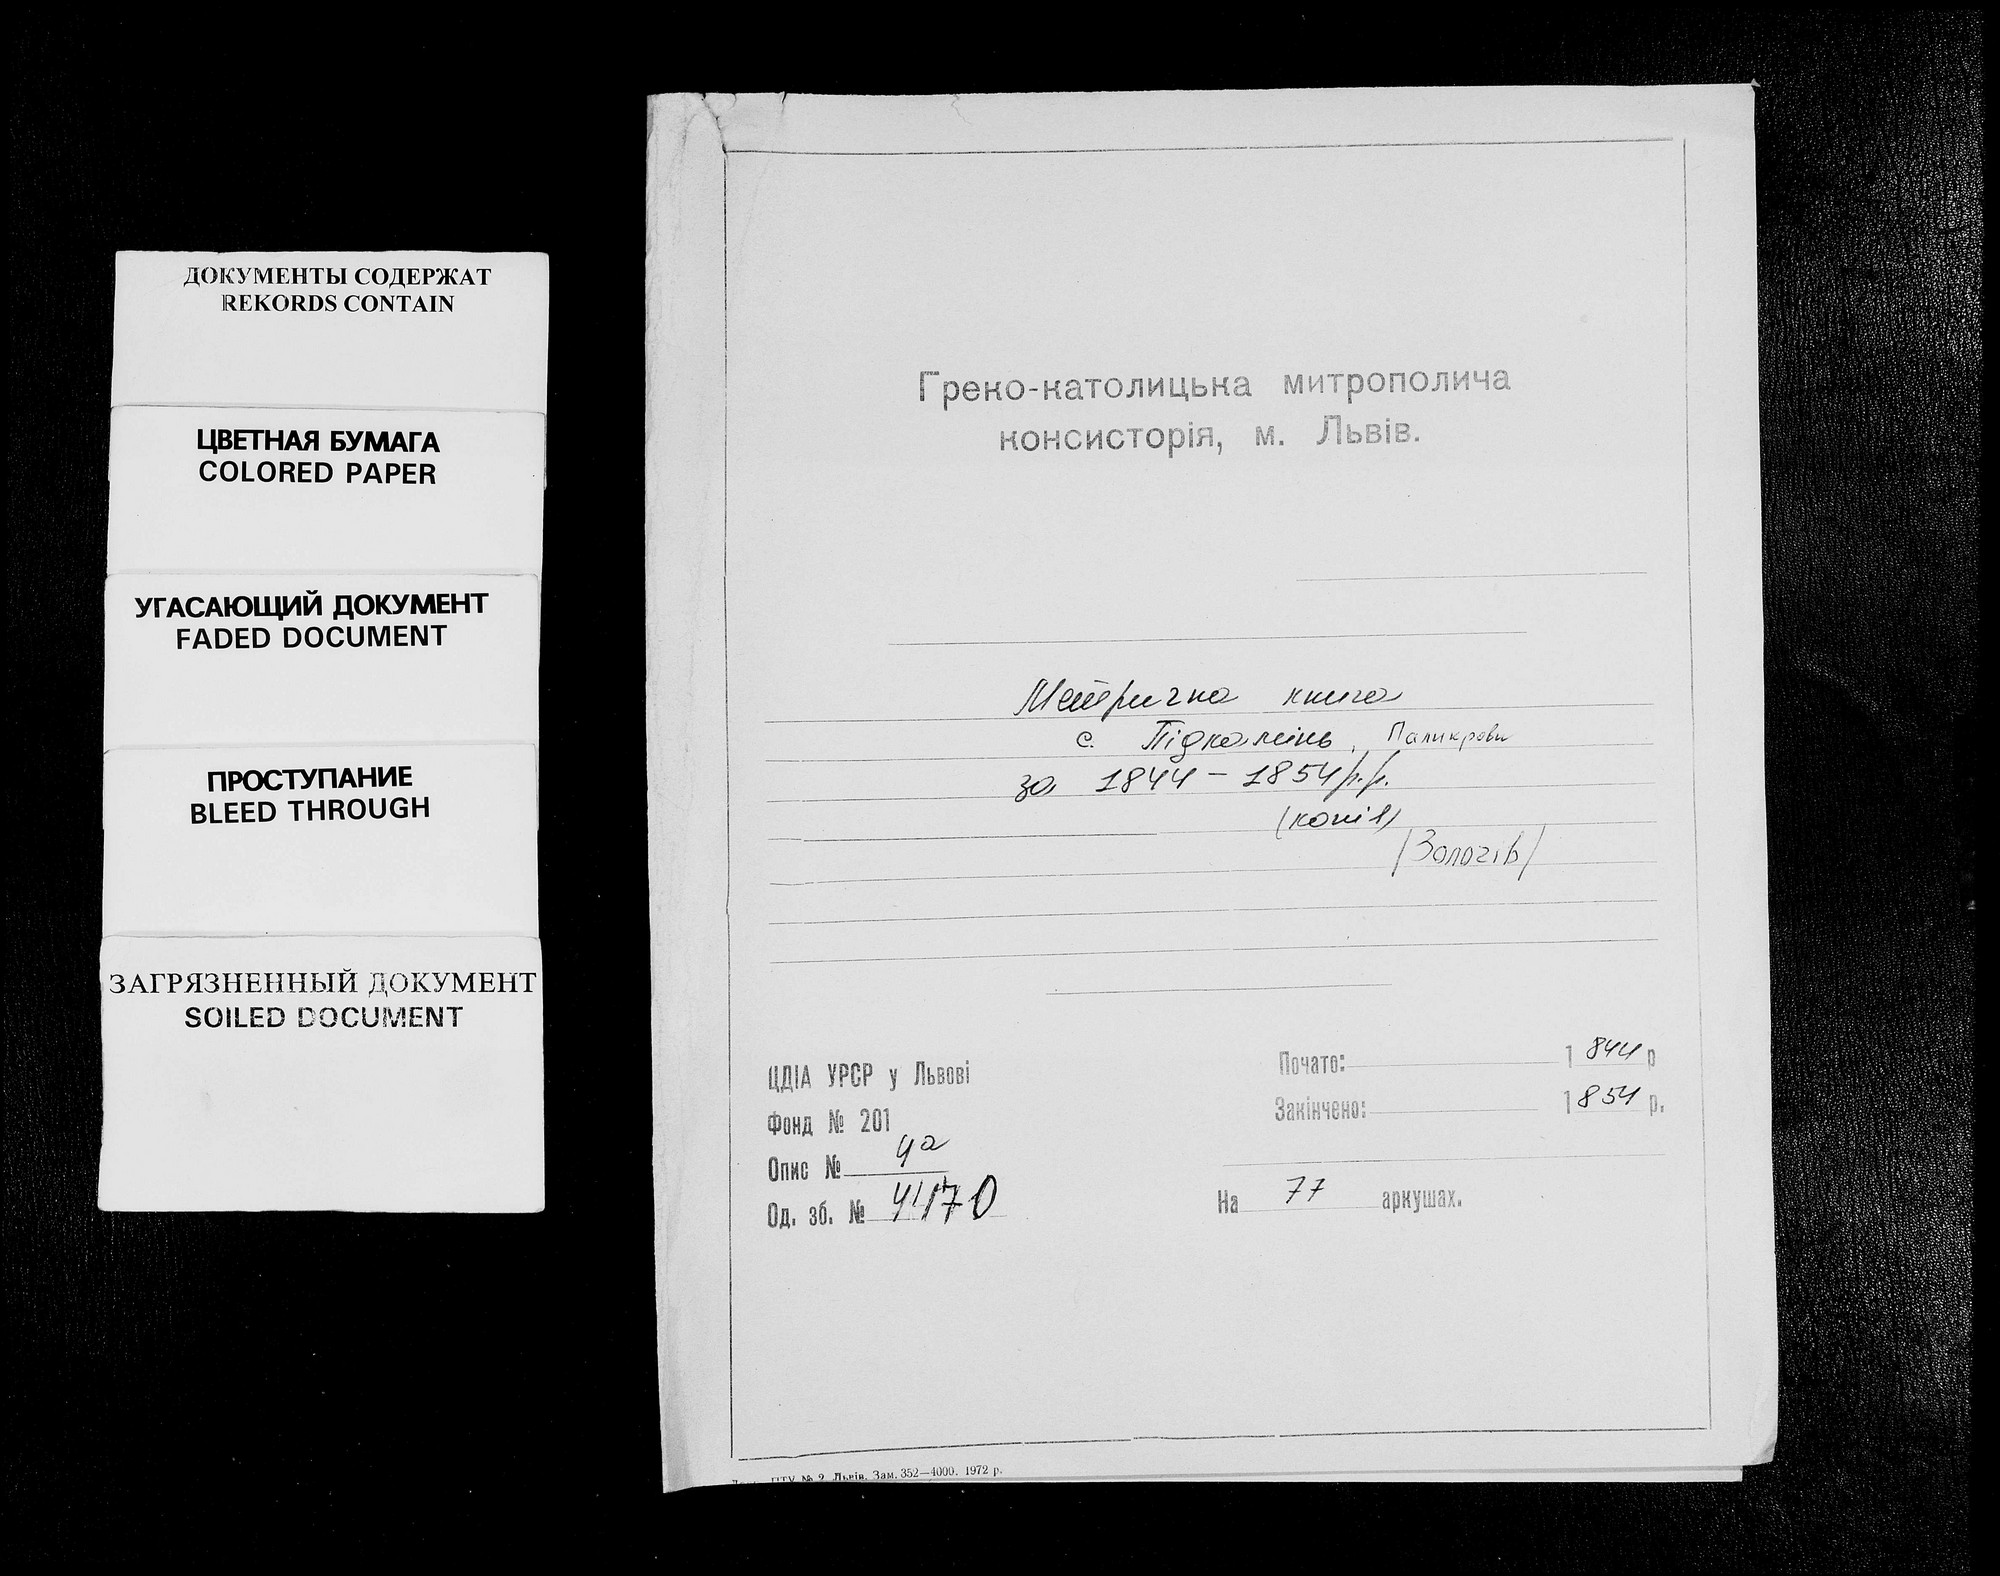 ДОКУМЕНТЫ СОДЕРЖАТ
REKORDS CONTAIN
ЦВЕТНАЯ БУМАГА
COLORED PAPER
УГАСАЮЩИЙ ДОКУМЕНТ
FADED DOCUMENT
ПРОСТУПАНИЕ
BLEED THROUGH
ЗАГРЯЗНЕННЫЙ ДОКУМЕНТ
SOILED DOCUMENT
Греко-католицька митрополича
консисторія, м. Львів.
Метрична книга
с. Підкамінь, Паликрови
за 1844 – 1854 р.р.
(копія)
/Золочів/
ЦДІА УРСР у Львові
Фонд № 201
Опис № 4а
Од. зб. № 4470
Почато: 1844 р
Закінчено: 1854 р.
На 77 аркушах.
ПТУ № 2. Львів. Зам. 352—4000. 1972 р.